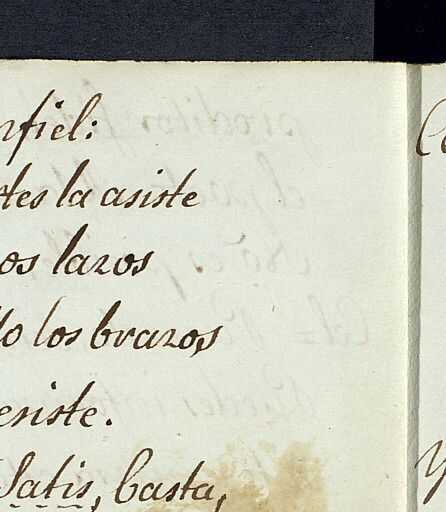 nfiel:
tes la asiste
os lazos
lo los brazos,
esiste.
Satis, basta,